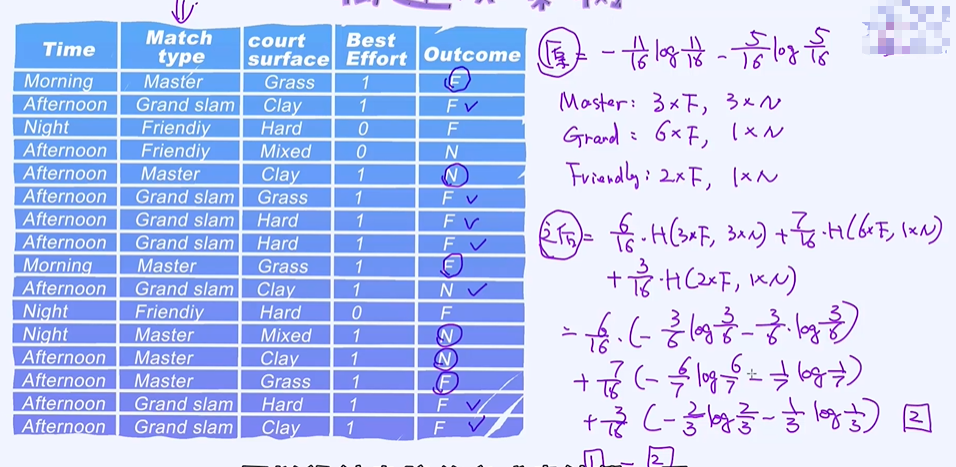 Time Match type court surface Best Effort Outcome
Morning Master Grass 1 F
Afternoon Grand slam Clay 1 F ✓
Night Friendiy Hard 0 F
Afternoon Friendiy Mixed 0 N
Afternoon Master Clay 1 N
Afternoon Grand slam Grass 1 F ✓
Afternoon Grand slam Hard 1 F ✓
Afternoon Grand slam Hard 1 F ✓
Morning Master Grass 1 F
Afternoon Grand slam Clay 1 N ✓
Night Friendly Hard 0 F
Night Master Mixed 1 N
Afternoon Master Clay 1 N
Afternoon Master Grass 1 F
Afternoon Grand slam Hard 1 F ✓
Afternoon Grand slam Clay 1 F ✓
= - 11/16 log 11/16 - 5/16 log 5/16
Master: 3×F, 3×N
Grand: 6×F, 1×N
Friendly: 2×F, 1×N
= 6/16 · H(3×F, 3×N) + 7/16 · H(6×F, 1×N)
+ 3/16 · H(2×F, 1×N)
= 6/16 · (- 3/6 log 3/6 - 3/6 · log 3/6)
+ 7/16 (- 6/7 log 6/7 - 1/7 log 1/7)
+ 3/16 (- 2/3 log 2/3 - 1/3 log 1/3) 2
1 - 2